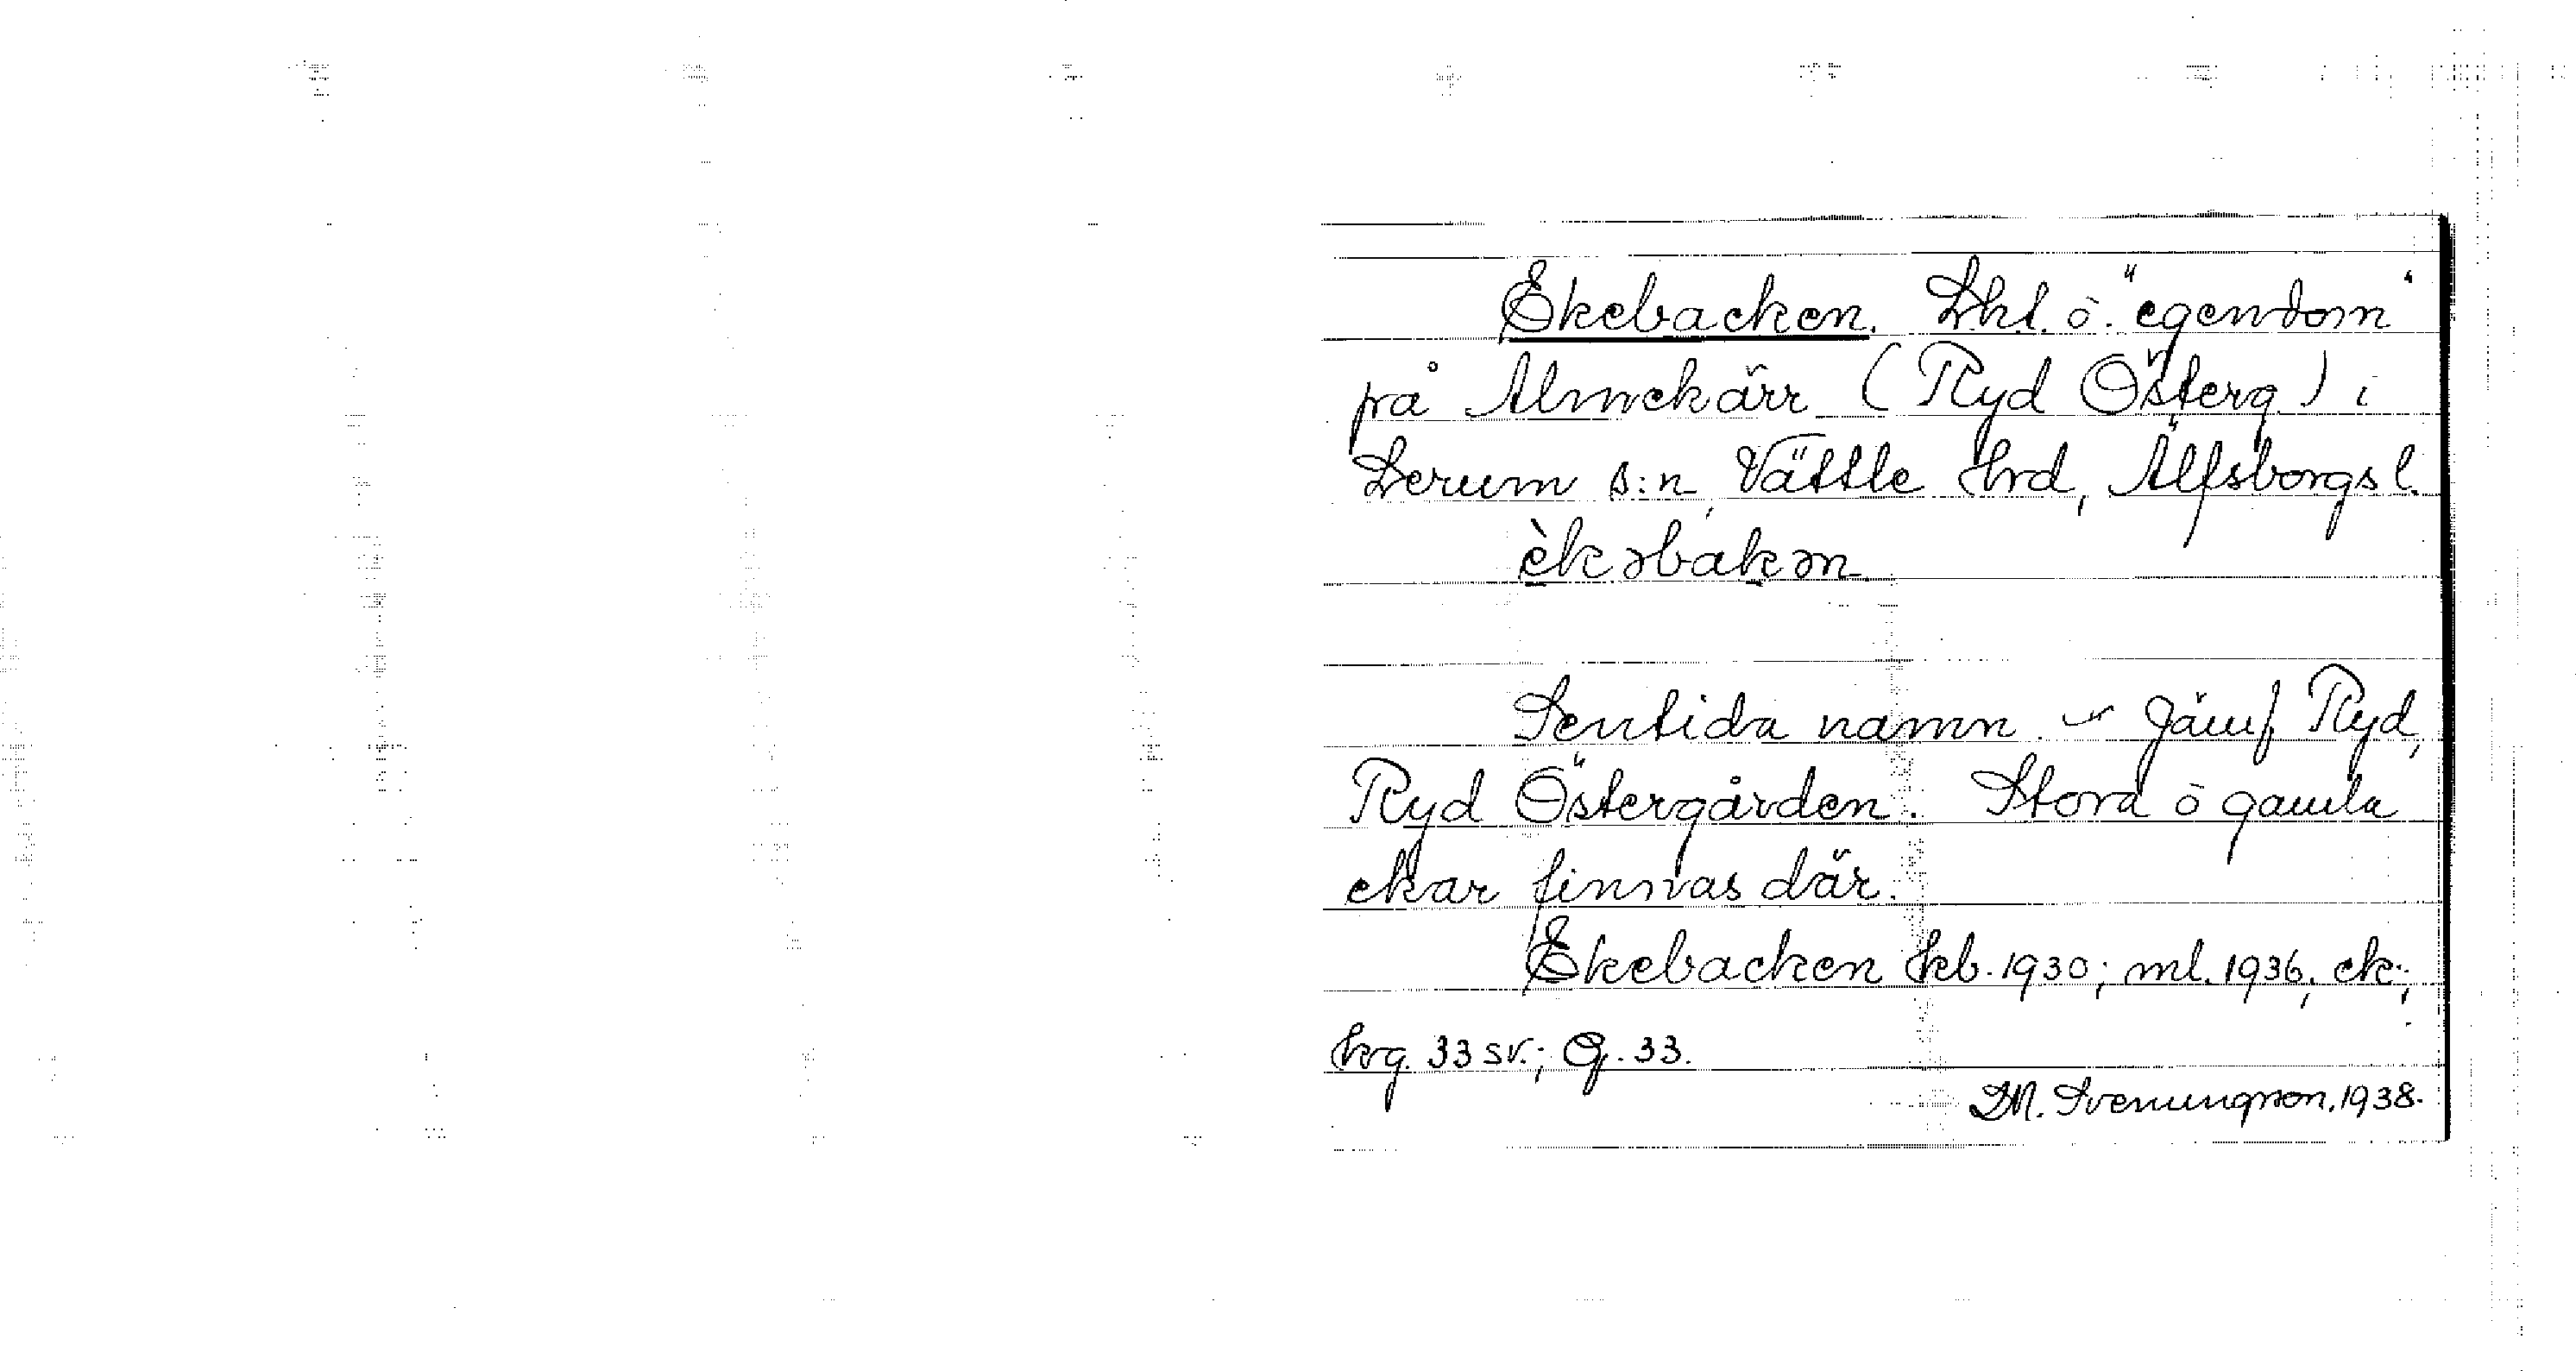 Ekebacken. Lht. o. "egendom"
på Almekärr (Ryd Österg.) i
Lerum s:n, Vättle hrd, Älfsborgs l.
èkəbakən
Sentida namn. – Jämf. Ryd,
Ryd Östergården. Stora o gamla
ekar finnas där.
Ekebacken kb. 1930; ml. 1936; ek.;
krg. 33 sv.; G. 33.
Svenungsson. 1938.